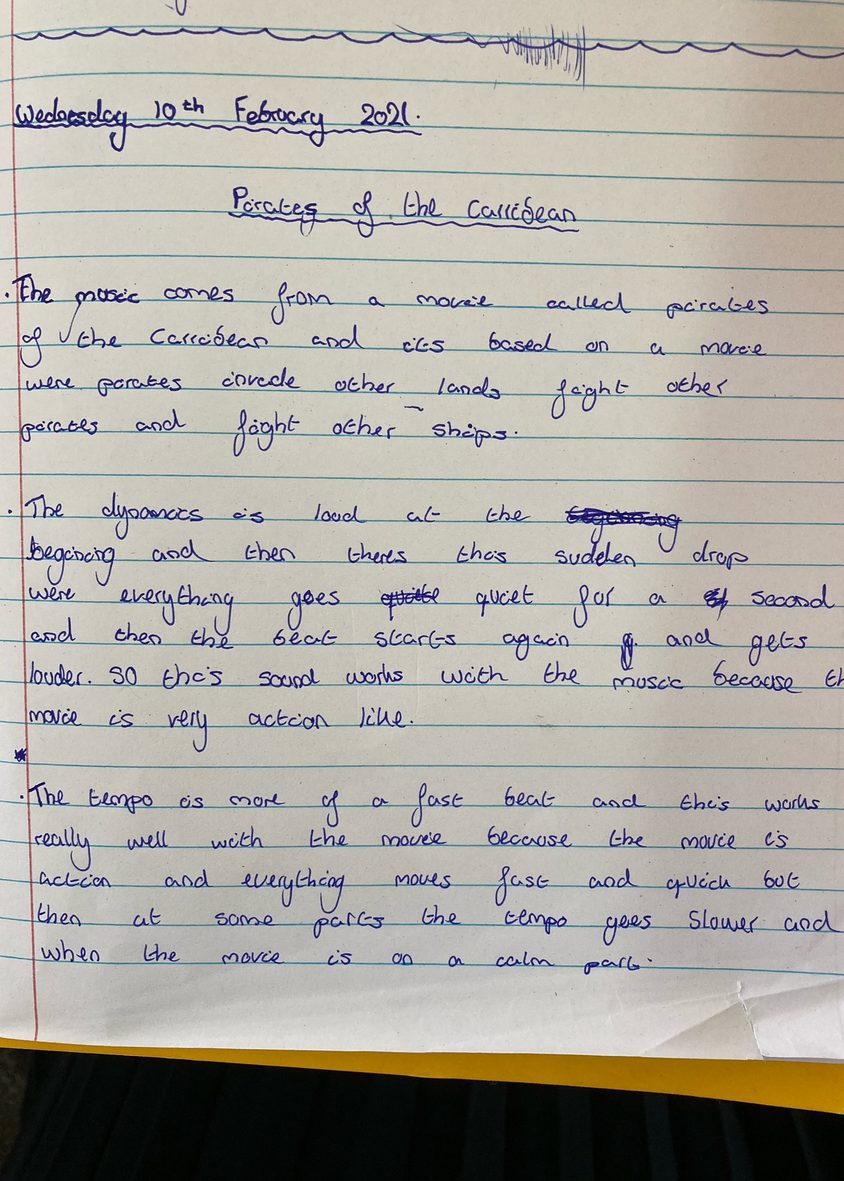 Wednesday 10th February 2021.
Pirates of the Carribean
. The music comes from a movie called pirates
of the Carribean and its based on a movie
were pirates invade other lands fight other
pirates and fight other ships.
. The dynamics is loud at the begining
begining and then theres this sudden drop
were everything goes quite quiet for a second
and then the beat starts again and gets
louder. So this sound works with the music because th
movie is very action like.
. The tempo is more of a fast beat and this works
really well with the movie because the movie is
action and everything moves fast and quick but
then at some parts the tempo goes slower and
when the movie is on a calm part.